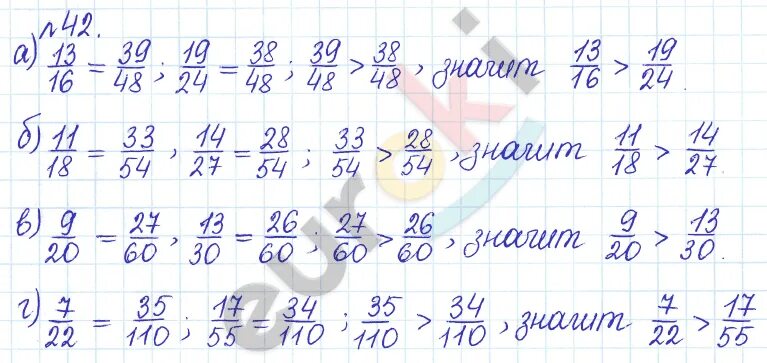 №42.
а) 13/16 = 39/48; 19/24 = 38/48; 39/48 > 38/48, значит 13/16 > 19/24.
б) 11/18 = 33/54, 14/27 = 28/54; 33/54 > 28/54, значит 11/18 > 14/27.
в) 9/20 = 27/60, 13/30 = 26/60; 27/60 > 26/60, значит 9/20 > 13/30.
г) 7/22 = 35/110; 17/55 = 34/110; 35/110 > 34/110, значит 7/22 > 17/55
euroki